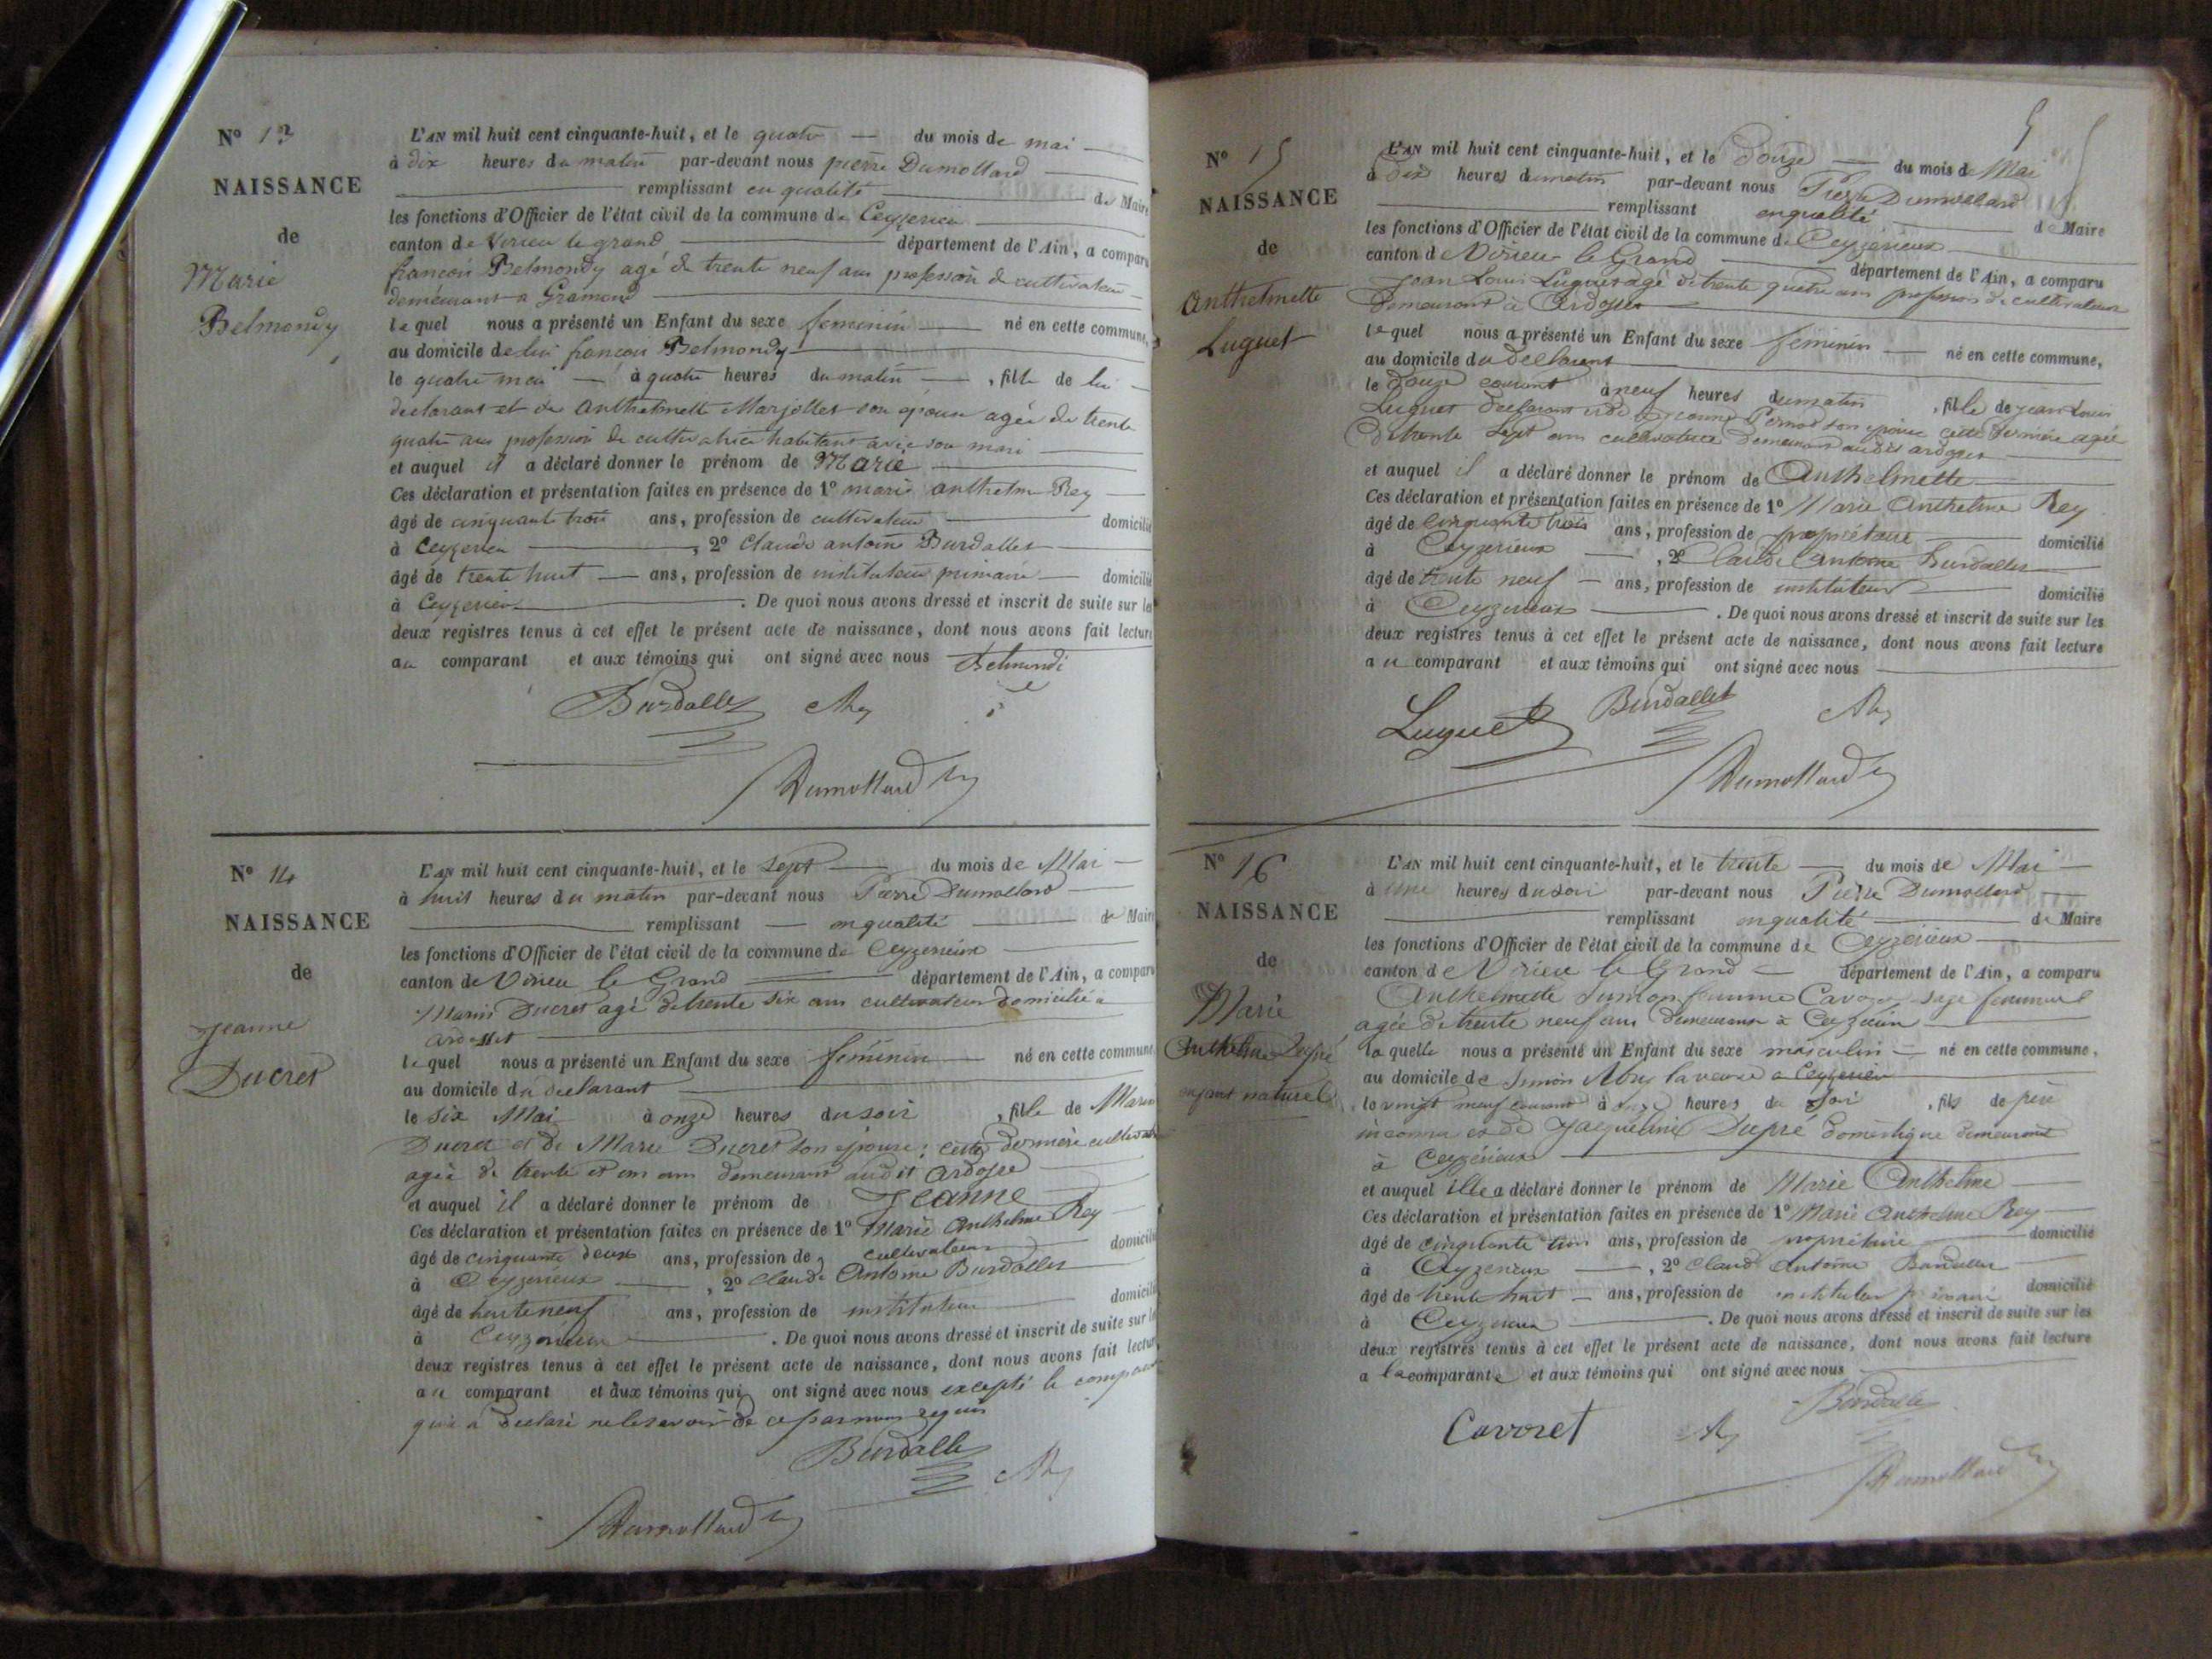 N° 13
NAISSANCE
de
Marie
Belmondy
L'AN mil huit cent cinquante-huit, et le quatre du mois de mai
à dix heures du matin par-devant nous pierre Dumollard
remplissant en qualité de Maire
les fonctions d'Officier de l'état civil de la commune de Ceyzerieu
canton de Virieu le grand département de l'Ain, a comparu
françois Belmondy agé de trente neuf ans profession de cultivateur
demeurant a Gramond
lequel nous a présenté un Enfant du sexe feminin né en cette commune,
au domicile de lui françois Belmondy
le quatre mai à quatre heures du matin, fille de lui
declarant et de Anthelmette Marjollet son epouse agée de trente
quatre ans profession de cultivatrice habitant avec son mari
et auquel il a déclaré donner le prénom de Marie
Ces déclaration et présentation faites en présence de 1° marie anthelme Rey
âgé de cinquante trois ans, profession de cultivateur domicilié
à Ceyzerieu, 2° Claude antoine Burdallet
âgé de trente huit ans, profession de instituteur primaire domicilié
à Ceyzerieu. De quoi nous avons dressé et inscrit de suite sur les
deux registres tenus à cet effet le présent acte de naissance, dont nous avons fait lecture
au comparant et aux témoins qui ont signé avec nous Belmondi
Burdallet Rey
Dumollard
N° 14
NAISSANCE
de
Jeanne
Ducret
L'AN mil huit cent cinquante-huit, et le sept du mois de Mai
à huit heures du matin par-devant nous Pierre Dumollard
remplissant en qualité de Maire
les fonctions d'Officier de l'état civil de la commune de Ceyzerieux
canton de Virieu le Grand département de l'Ain, a comparu
Marin Ducret agé de trente six ans cultivateur domicilié à
lequel nous a présenté un Enfant du sexe féminin né en cette commune
au domicile du declarant
le six Mai à onze heures du soir, fille de Marin
Ducret et de Marie Ducret son épouse; cette dernière
agée de trente et un ans demeurant audit
et auquel il a déclaré donner le prénom de Jeanne
Ces déclaration et présentation faites en présence de 1° Marie Anthelme Rey
âgé de cinquante deux ans, profession de cultivateur domicilié
à Ceyzerieux, 2° Claude Antoine Burdallet
âgé de trente neuf ans, profession de instituteur domicilié
à Ceyzerieux. De quoi nous avons dressé et inscrit de suite sur les
deux registres tenus à cet effet le présent acte de naissance, dont nous avons fait lecture
au comparant et aux témoins qui ont signé avec nous excepté le comparant
qui a declaré ne le savoir de ce par nous requis
Burdallet Rey
Dumollard
5
N° 15
NAISSANCE
de
Anthelmette
Luguet
L'AN mil huit cent cinquante-huit, et le douze du mois de Mai
à dix heures du matin par-devant nous Pierre Dumollard
remplissant en qualité de Maire
les fonctions d'Officier de l'état civil de la commune de Ceyzérieux
canton de Virieu le Grand département de l'Ain, a comparu
Jean Louis Luguet agé de trente quatre ans profession de cultivateur
demeurant à
lequel nous a présenté un Enfant du sexe féminin né en cette commune,
au domicile du declarant
le douze courant à neuf heures du matin, fille de jean Louis
Luguet declarant et de jeanne son épouse cette dernière agée
de trente sept ans cultivatrice demeurant audit
et auquel il a déclaré donner le prénom de Anthelmette
Ces déclaration et présentation faites en présence de 1° Marie Anthelme Rey
âgé de cinquante trois ans, profession de propriétaire domicilié
à Ceyzerieux, 2° Claude Antoine Burdallet
âgé de trente neuf ans, profession de instituteur domicilié
à Ceyzerieux. De quoi nous avons dressé et inscrit de suite sur les
deux registres tenus à cet effet le présent acte de naissance, dont nous avons fait lecture
au comparant et aux témoins qui ont signé avec nous
Luguet Burdallet Rey
Dumollard
N° 16
NAISSANCE
de
Marie
Anthelme Dupré
enfant naturel
L'AN mil huit cent cinquante-huit, et le trente du mois de Mai
à une heures du soir par-devant nous Pierre Dumollard
remplissant en qualité de Maire
les fonctions d'Officier de l'état civil de la commune de Ceyzérieux
canton de Virieu le Grand département de l'Ain, a comparu
Anthelmette Jumon femme sage femme
agée de trente neuf ans demeurant à Ceyzerieu
laquelle nous a présenté un Enfant du sexe masculin né en cette commune,
au domicile de la veuve a Ceyzerieu
le vingt neuf courant à onze heures du soir, fils de père
inconnu et de Jacqueline Dupré domestique demeurant
à Ceyzérieux
et auquel elle a déclaré donner le prénom de Marie Anthelme
Ces déclaration et présentation faites en présence de 1° Marie Anthelme Rey
âgé de cinquante trois ans, profession de propriétaire domicilié
à Ceyzerieux, 2° Claude Antoine Burdallet
âgé de trente huit ans, profession de instituteur primaire domicilié
à Ceyzerieux. De quoi nous avons dressé et inscrit de suite sur les
deux registres tenus à cet effet le présent acte de naissance, dont nous avons fait lecture
a la comparante et aux témoins qui ont signé avec nous
Burdallet
Cavoret Rey
Dumollard